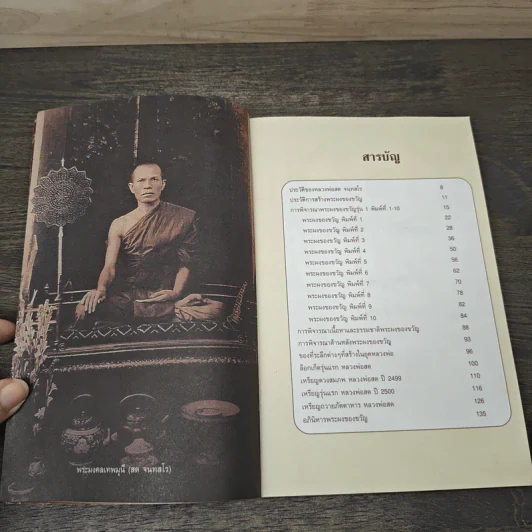 พระมงคลเทพมุนี (สด จนฺทสโร)
สารบัญ
ประวัติของหลวงพ่อสด จนฺทสโร 6
ประวัติการสร้างพระผงของขวัญ 11
การพิจารณาพระผงของขวัญรุ่น 1 พิมพ์ที่ 1-10 15
พระผงของขวัญ พิมพ์ที่ 1 22
พระผงของขวัญ พิมพ์ที่ 2 28
พระผงของขวัญ พิมพ์ที่ 3 36
พระผงของขวัญ พิมพ์ที่ 4 50
พระผงของขวัญ พิมพ์ที่ 5 56
พระผงของขวัญ พิมพ์ที่ 6 62
พระผงของขวัญ พิมพ์ที่ 7 70
พระผงของขวัญ พิมพ์ที่ 8 78
พระผงของขวัญ พิมพ์ที่ 9 82
พระผงของขวัญ พิมพ์ที่ 10 84
การพิจารณาเนื้อหาและธรรมชาติพระผงของขวัญ 88
การพิจารณาด้านหลังพระผงของขวัญ 93
ของที่ระลึกต่างๆที่สร้างในยุคหลวงพ่อ 96
ล็อกเก็ตรุ่นแรก หลวงพ่อสด 100
เหรียญดวงสมภพ หลวงพ่อสด ปี 2499 110
เหรียญรุ่นแรก หลวงพ่อสด ปี 2500 116
เหรียญถวายภัตตาหาร หลวงพ่อสด 126
อภินิหารพระผงของขวัญ 135